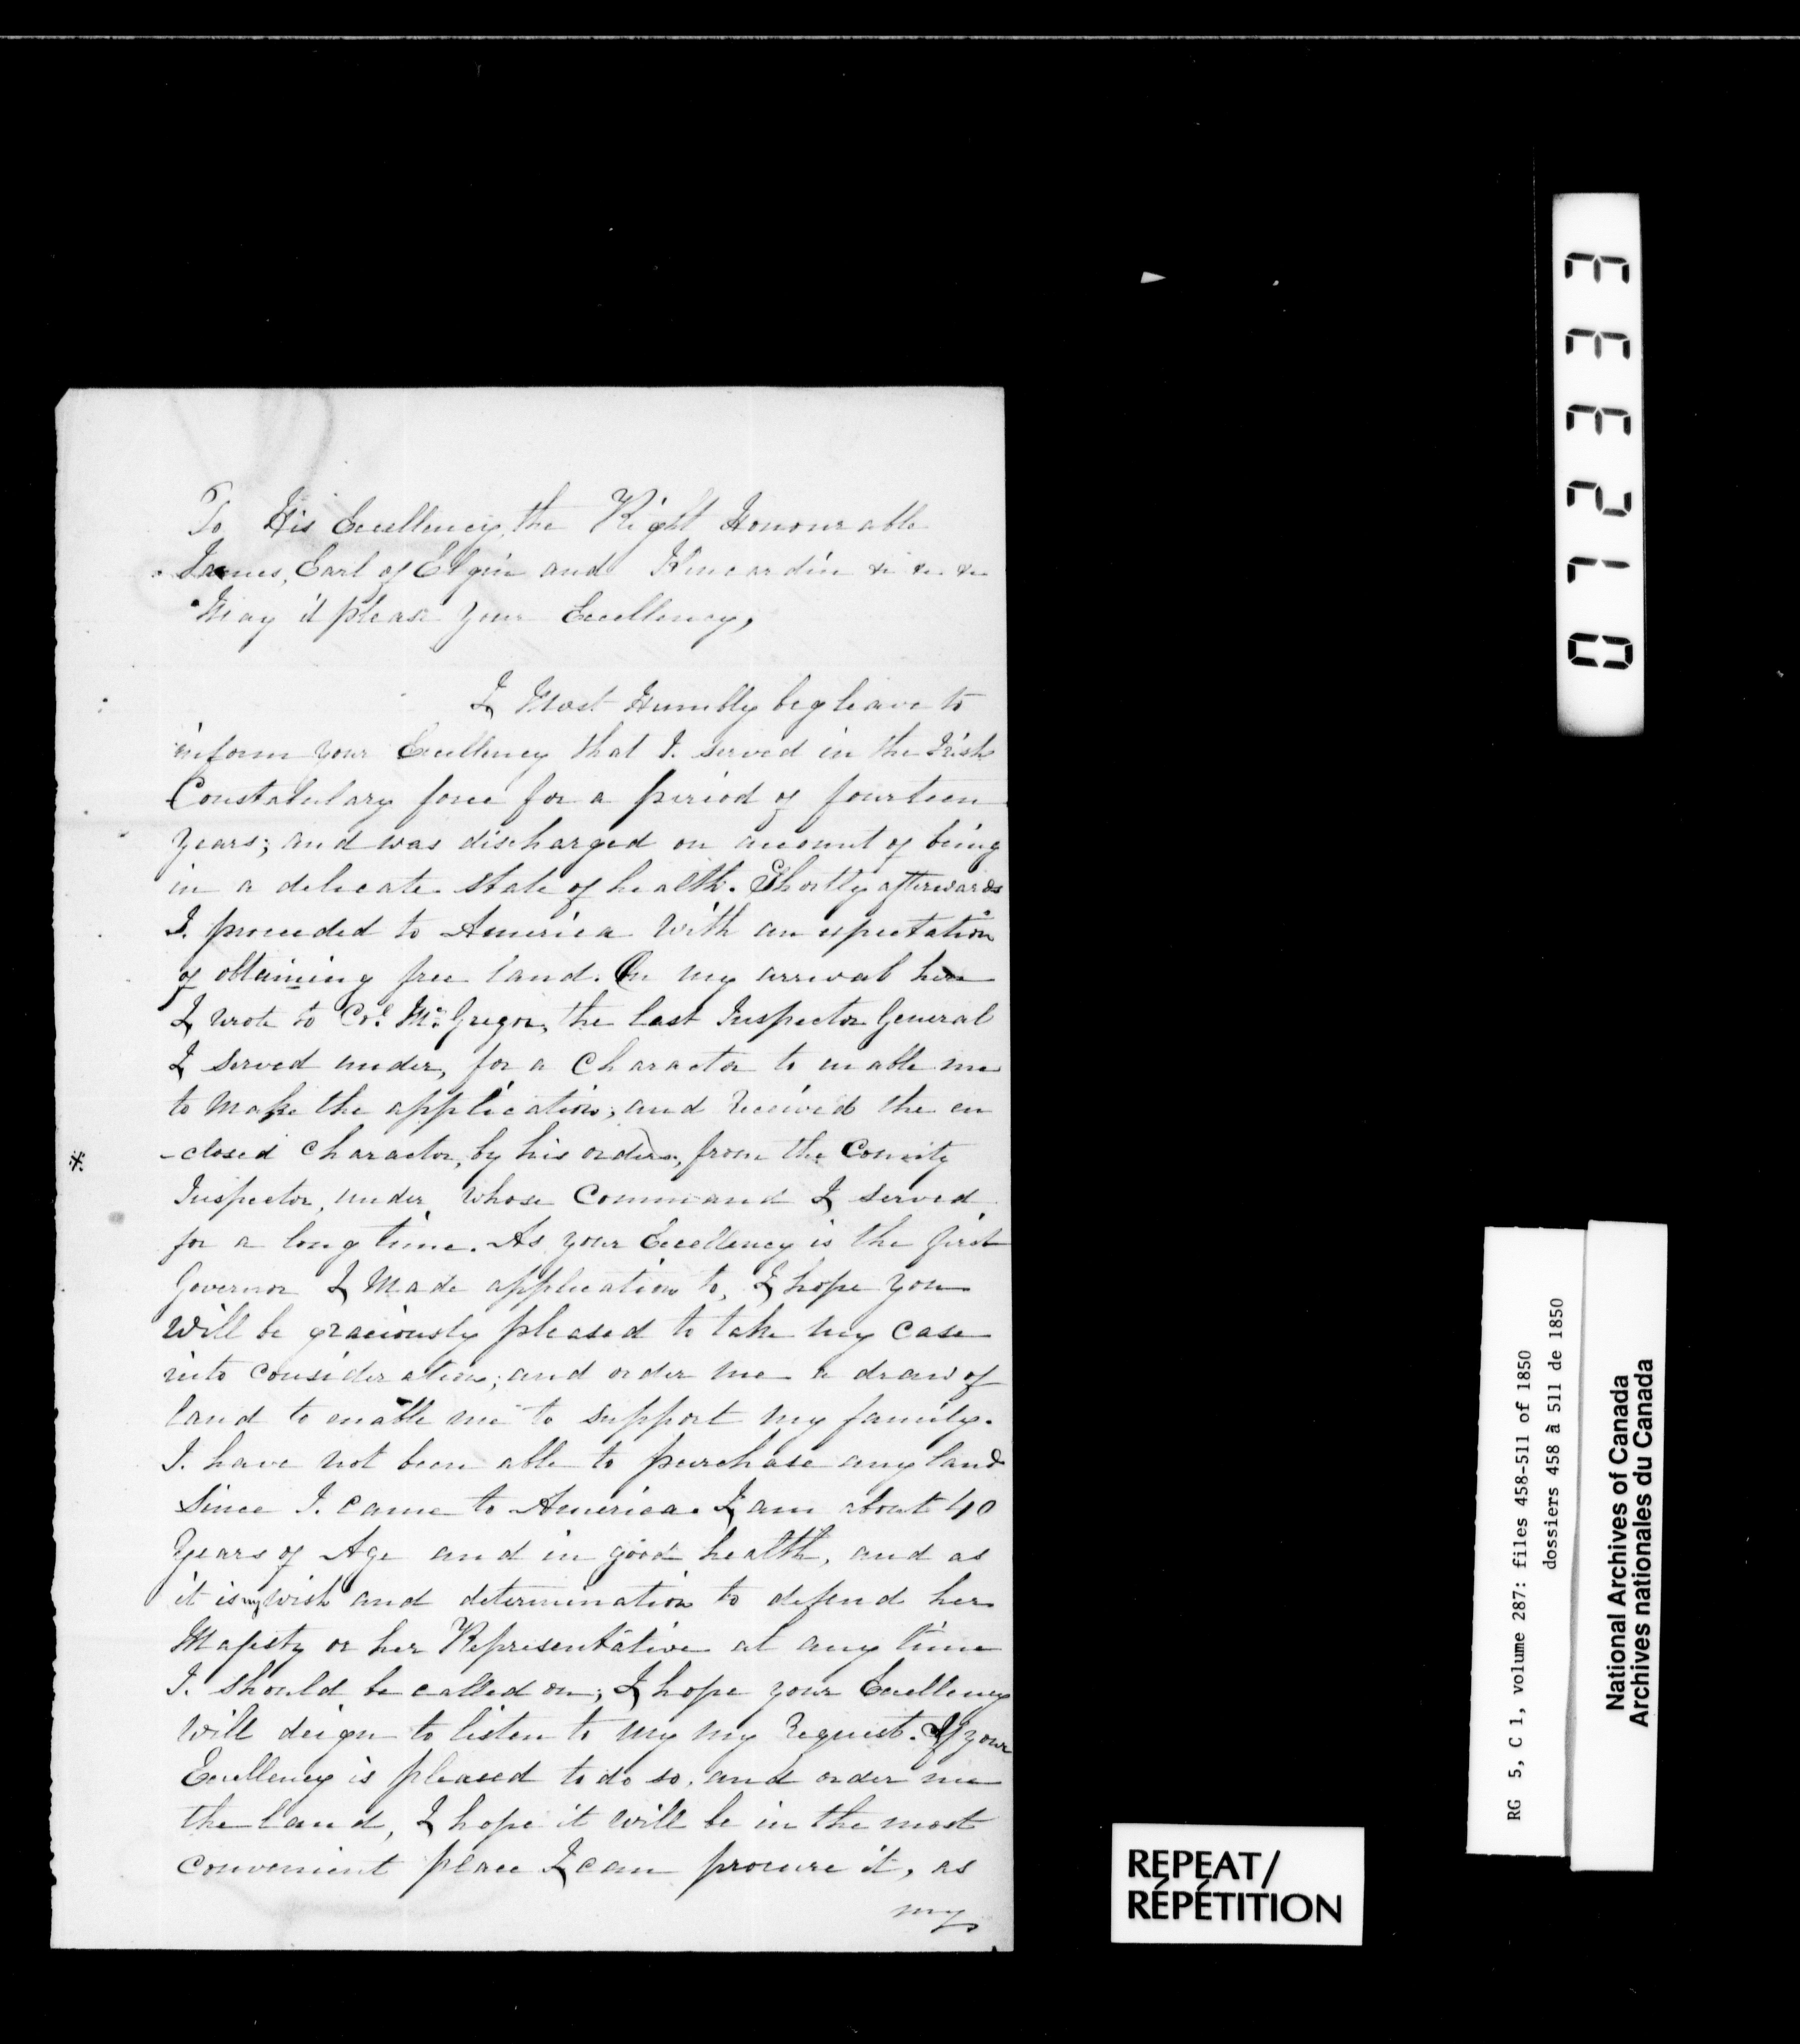 To His Excellency, the Right Honourable
James, Earl of Elgin and Kincardin &c &c &c
May it please your Excellency,
I Most Humbly beg leave to
inform your Excellency that I. served in the Irish
Constabulary force for a period of fourteen
years; and was discharged on account of being
in a delicate state of health. Shortly afterwards
I. proceeded to America with an expectation
of obtaining free land. On my arrival here
I wrote to Col. Mc.Gregor, the last Inspector General
I served under, for a character to enable me
to make the application; and received the en
-closed character, by his orders, from the County
*
Inspector, under whose command I served
for a long time. As your Excellency is the first
Governor I made application to, I hope you
will be graciously pleased to take my case
into consideration; and order me a draw of
land to enable me to support my family.
I. have not been able to purchase any land
since I. came to America. I am about 40
years of Age and in good health, and as
it is my wish and determination to defend her
Majesty or her Representative at any time
I. should be called on; I hope your Excellency
will deign to listen to my my request. If your
Excellency is pleased to do so, and order me
the land, I hope it will be in the most
convenient place I can procure it, as
my
REPEAT/
RÉPÉTITION
012333
RG 5, C 1, volume 287: files 458-511 of 1850
dossiers 458 à 511 de 1850
National Archives of Canada
Archives nationales du Canada